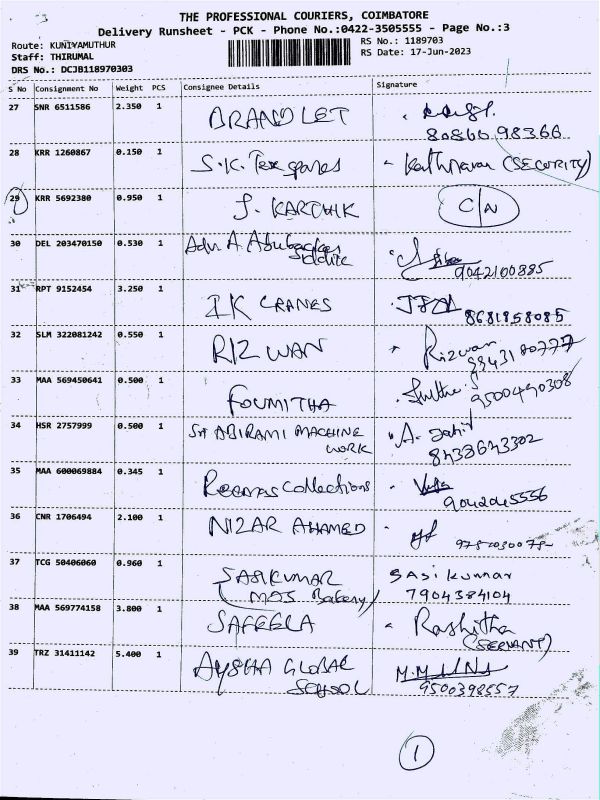 THE PROFESSIONAL COURIERS, COIMBATORE
Delivery Runsheet - PCK - Phone No.:0422-3505555 - Page No.:3
Route: KUNIYAMUTHUR RS No.: 1189703
Staff: THIRUMAL RS Date: 17-Jun-2023
DRS No.: DCJB118970303
S No Consignment No Weight PCS Consignee Details Signature
27 SNR 6511586 2.350 1 BRAND LET
80866 98366
28 KRR 1260867 0.150 1 S.K. Tex spares Kathiravan (SECURITY)
29 KRR 5692380 0.950 1 J. KARTHIK C/N
30 DEL 203470150 0.530 1 Adv A. Abubacker
siddic 9042100885
31 RPT 9152454 3.250 1 IK CRANES
8681858085
32 SLM 322081242 0.550 1 RIZWAN Rizwan
33 MAA 569450641 0.500 1 FOUMITHA
9500490308
34 HSR 2757999 0.500 1 SH ABIRAMI MACHINE
WORK 8438643302
35 MAA 600069884 0.345 1 Collections
9042045556
36 CNR 1706494 2.100 1 NIZAR AHAMED
37 TCG 50406060 0.960 1 SASIKUMAR SASi kumar
(MAS Bakery) 7904384104
38 MAA 569774158 3.800 1 SAFEELA Rashitha
(SERVANT)
39 TRZ 31411142 5.400 1 AYSHA GLOBAL
SCHOOL 9500398557
1